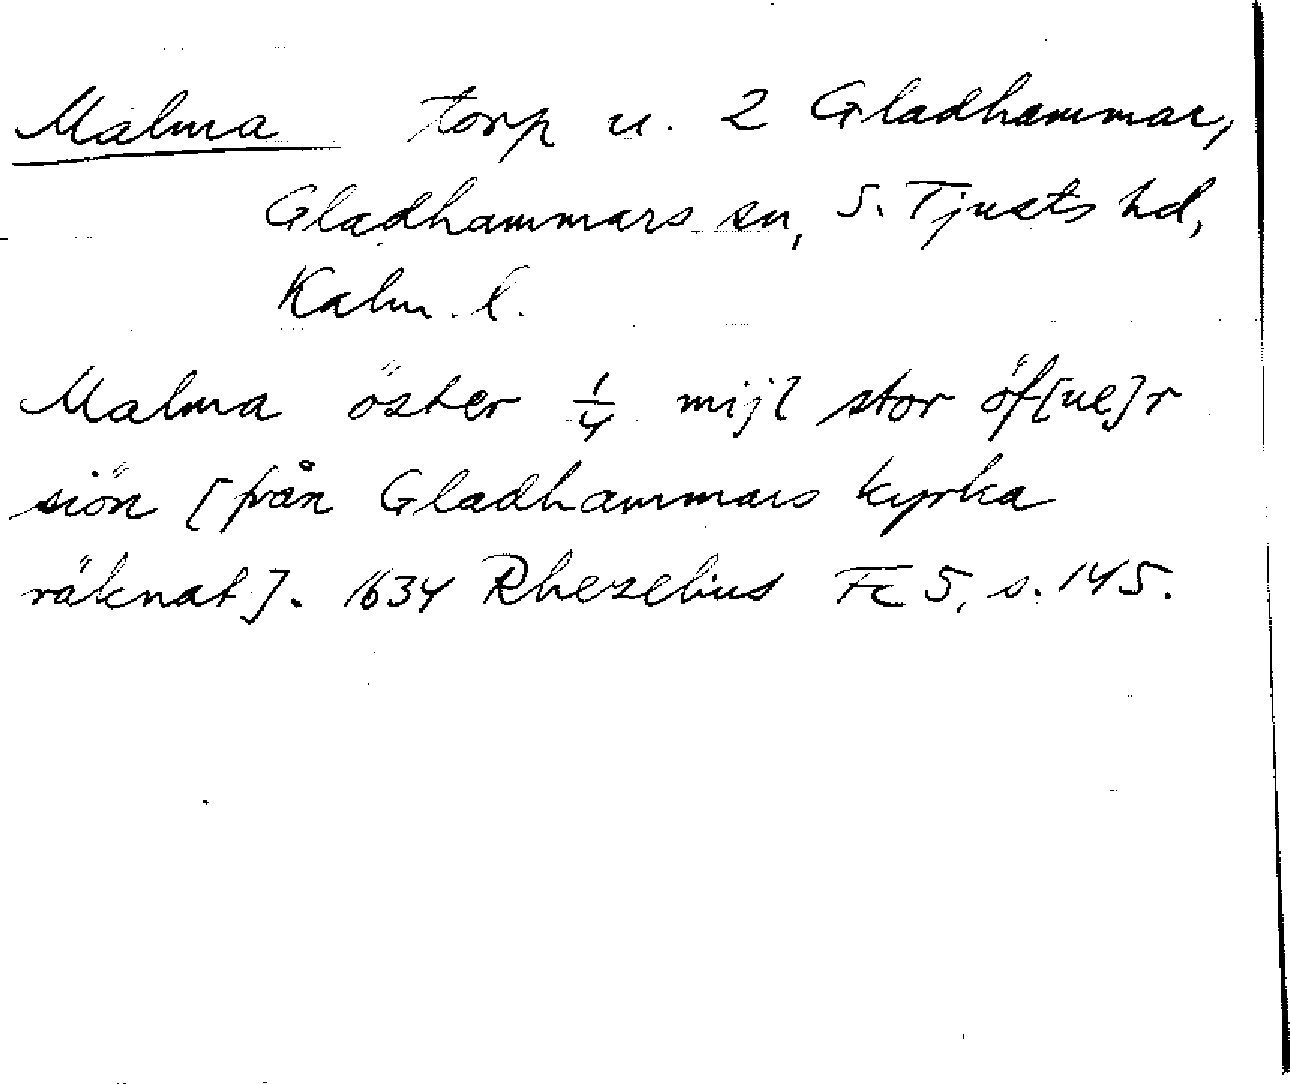 Malma torp u. 2 Gladhammar,
Gladhammars sn, S. Tjusts hd,
Kalm. l.
Malma öster 1/4 mijl stor öf[ue]r
siön [från Gladhammars kyrka
räknat]. 1634 Rhezelius Fc 5, s. 145.